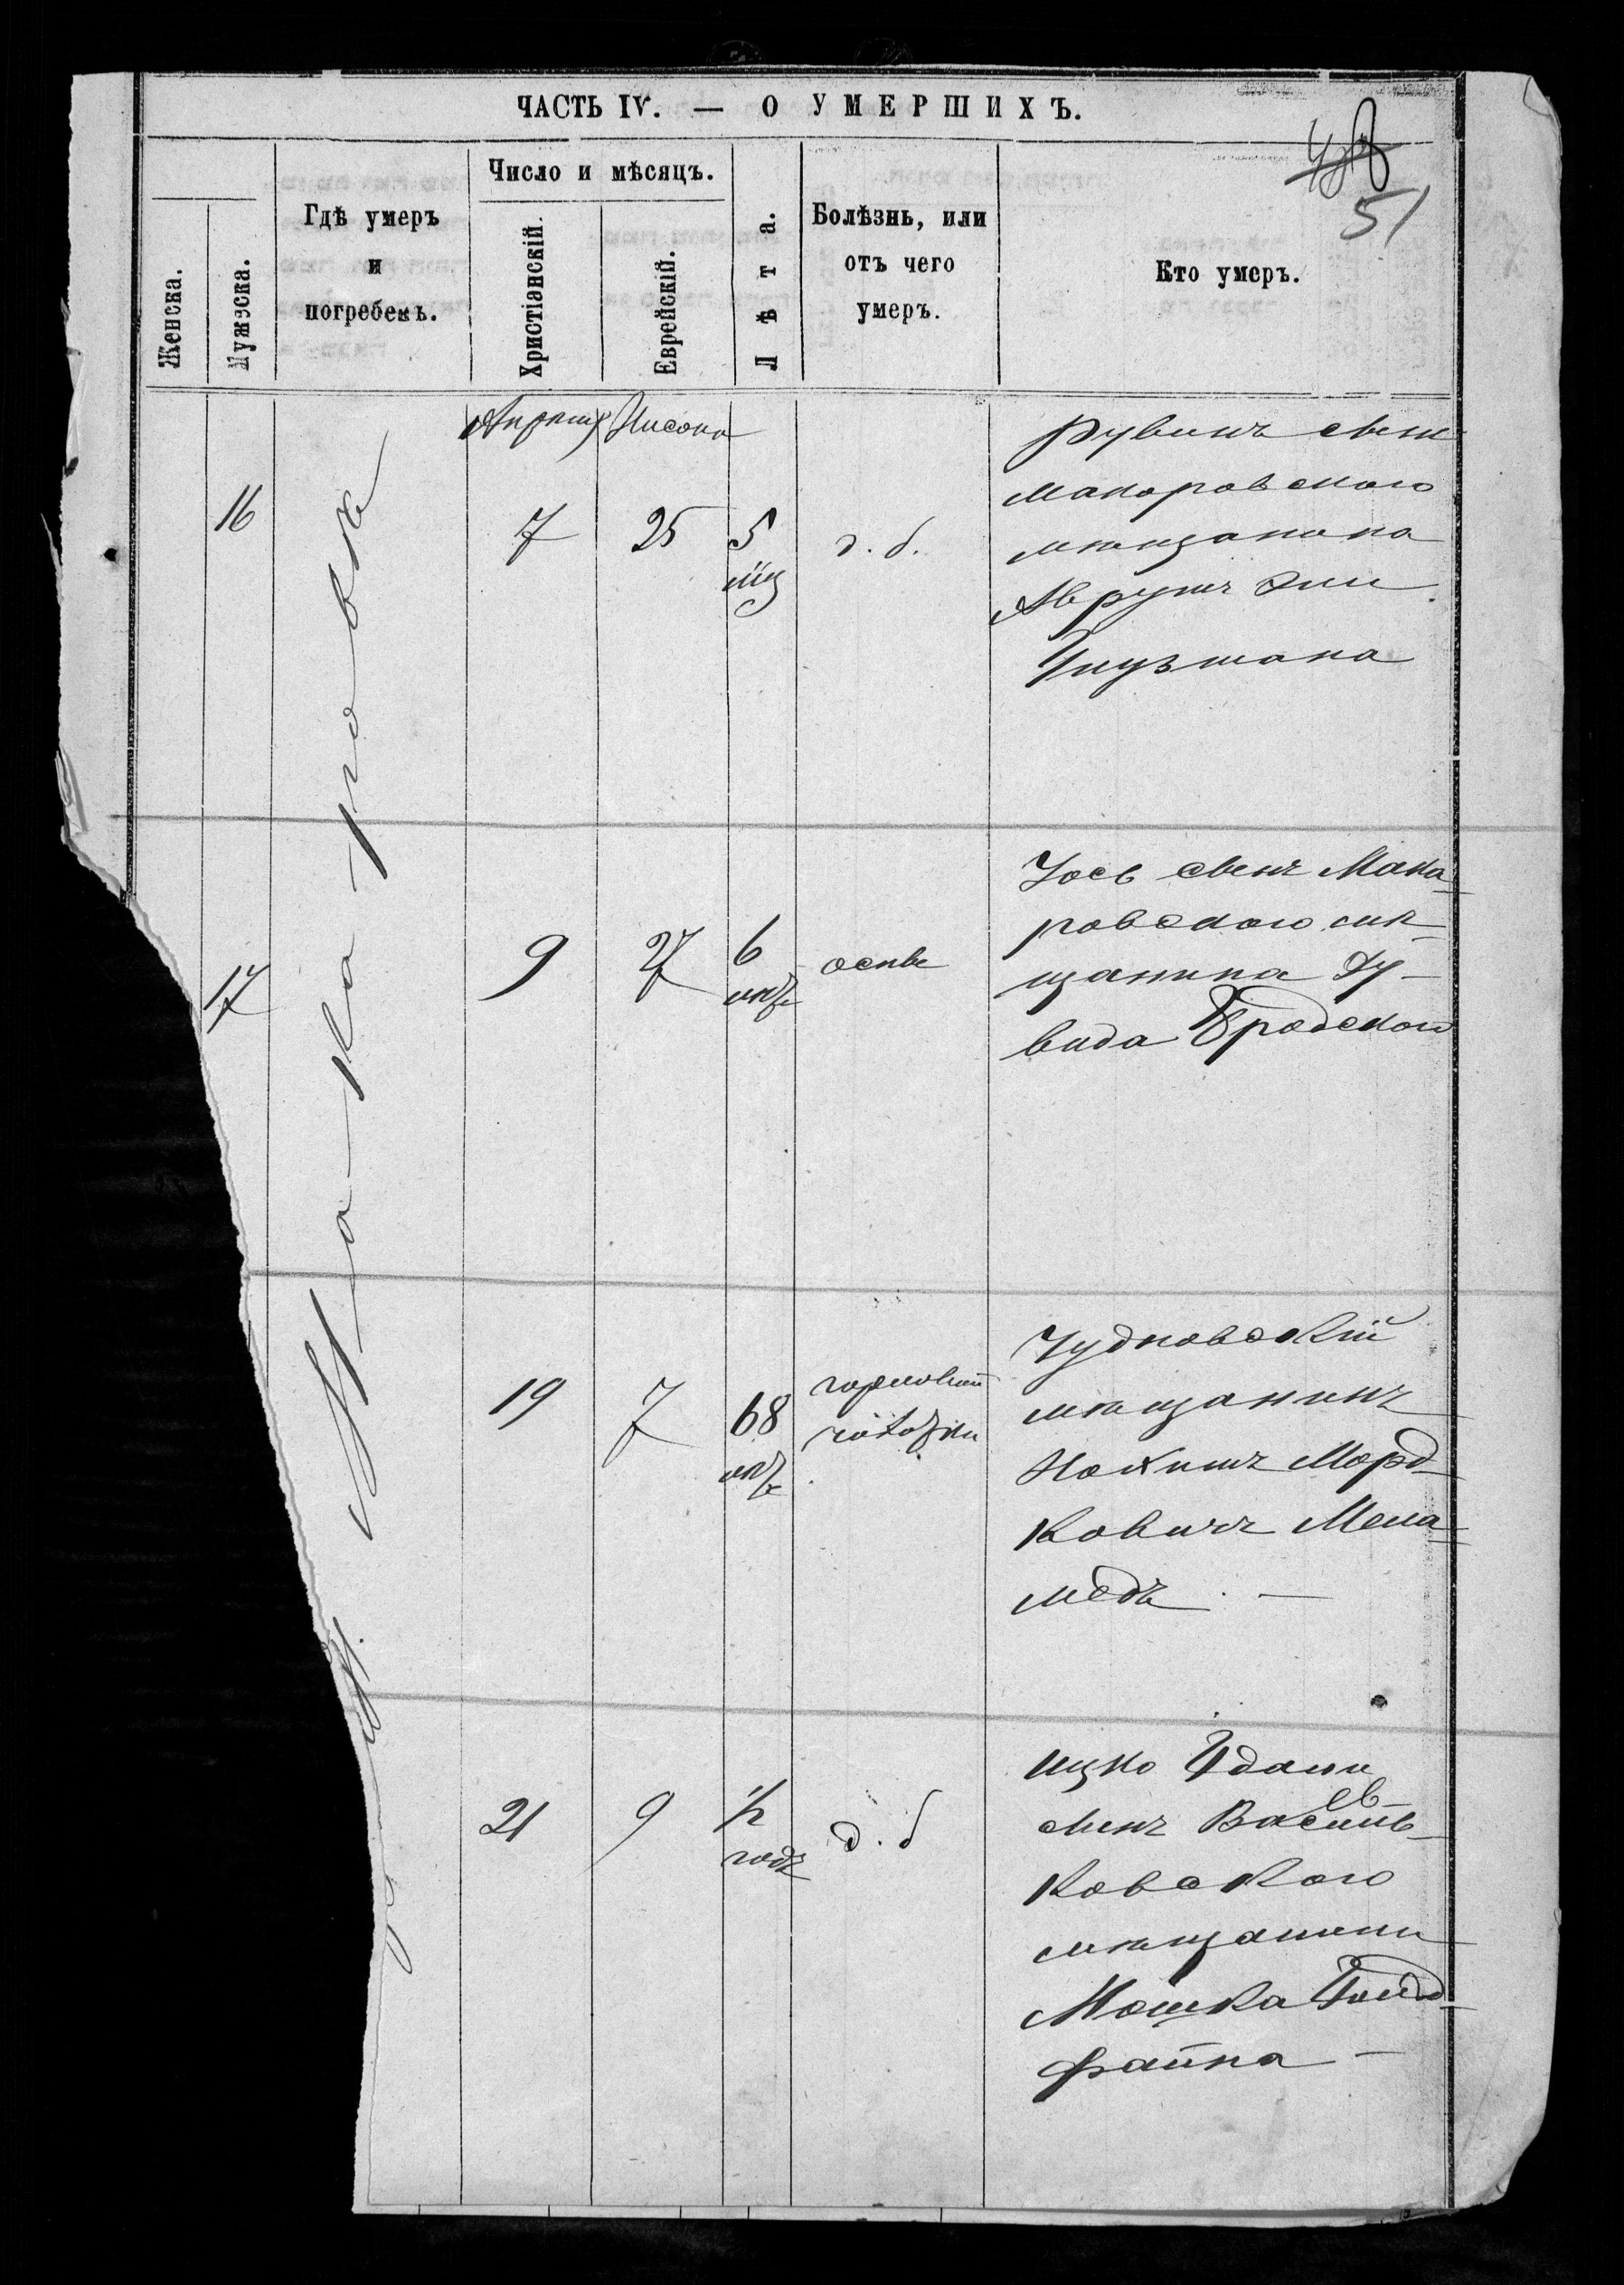 ЧАСТЬ IV. — О УМЕРШИХЪ.
51
Женска.
Мужеска.
Гдѣ умеръ
и
погребенъ.
Число и мѣсяцъ.
Христіанскій.
Еврейскій.
Лѣта.
Болѣзнь, или
отъ чего
умеръ.
Кто умеръ.
Апрѣля Нисона
16
7
25
5
мц
д. б.
Рувинъ сынъ
Макаровского
мѣщанина
Аврумъ
17
9
27
6
лѣтъ
оспы
Іось сынъ Мака-
ровского мѣ-
щанина Ду-
вида Бродского
19
7
68
лѣтъ
Чудновскій
мѣщанинъ
Нахимъ Морд-
ковичъ Мела-
медъ. —
21
9
1/2
годъ
д. б
Ицко
сынъ Василь-
ковского
мѣщанина
Мошка Голд-
файна —